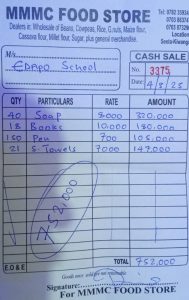 MMMC FOOD STORE
Dealers in: Wholesale of Beans, Cowpeas, Rice, G.nuts, Maize flour,
Cassava flour, Millet flour, Sugar, plus general merchandise.
Tel:
Location
M/s
Edapo School
CASH SALE
No. 3375
Date: 4/3/25
QTY PARTICULARS RATE AMOUNT
40 Soap 8000 320,000
18 Books 10,000 180,000
150 Pen 700 105,000
21 S. Towels 7000 147,000
752,000
E.O & E TOTAL 752,000
Goods once sold are not returnable
Signature:
For MMMC FOOD STORE